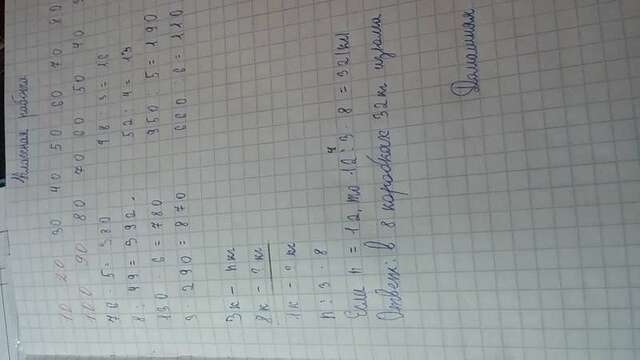 Классная работа
10 20 30 40 50 60 70 80
100 90 80 70 60 50 40
76 · 5 = 380 48 : 3 = 16
8 · 49 = 392. 52 : 4 = 13
130 · 6 = 780 950 : 5 = 190
3 · 290 = 870 660 : 6 = 110
3к - n кг
8к - ? кг
1к - ? кг
n : 3 · 8
4
Если n = 12, то 12 : 3 · 8 = 32 (кг)
Ответ: в 8 коробках 32 кг изюма
Домашняя